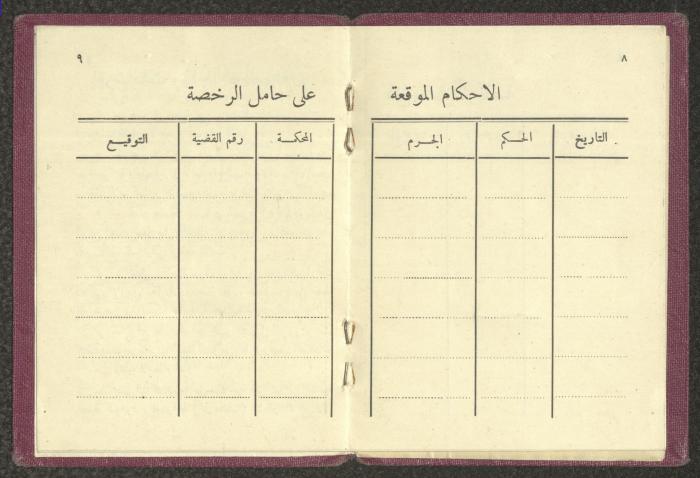 ٨
الاحكام الموقعة
التاريخ الحكم الجرم
٩
على حامل الرخصة
المحكمة رقم القضية التوقيع